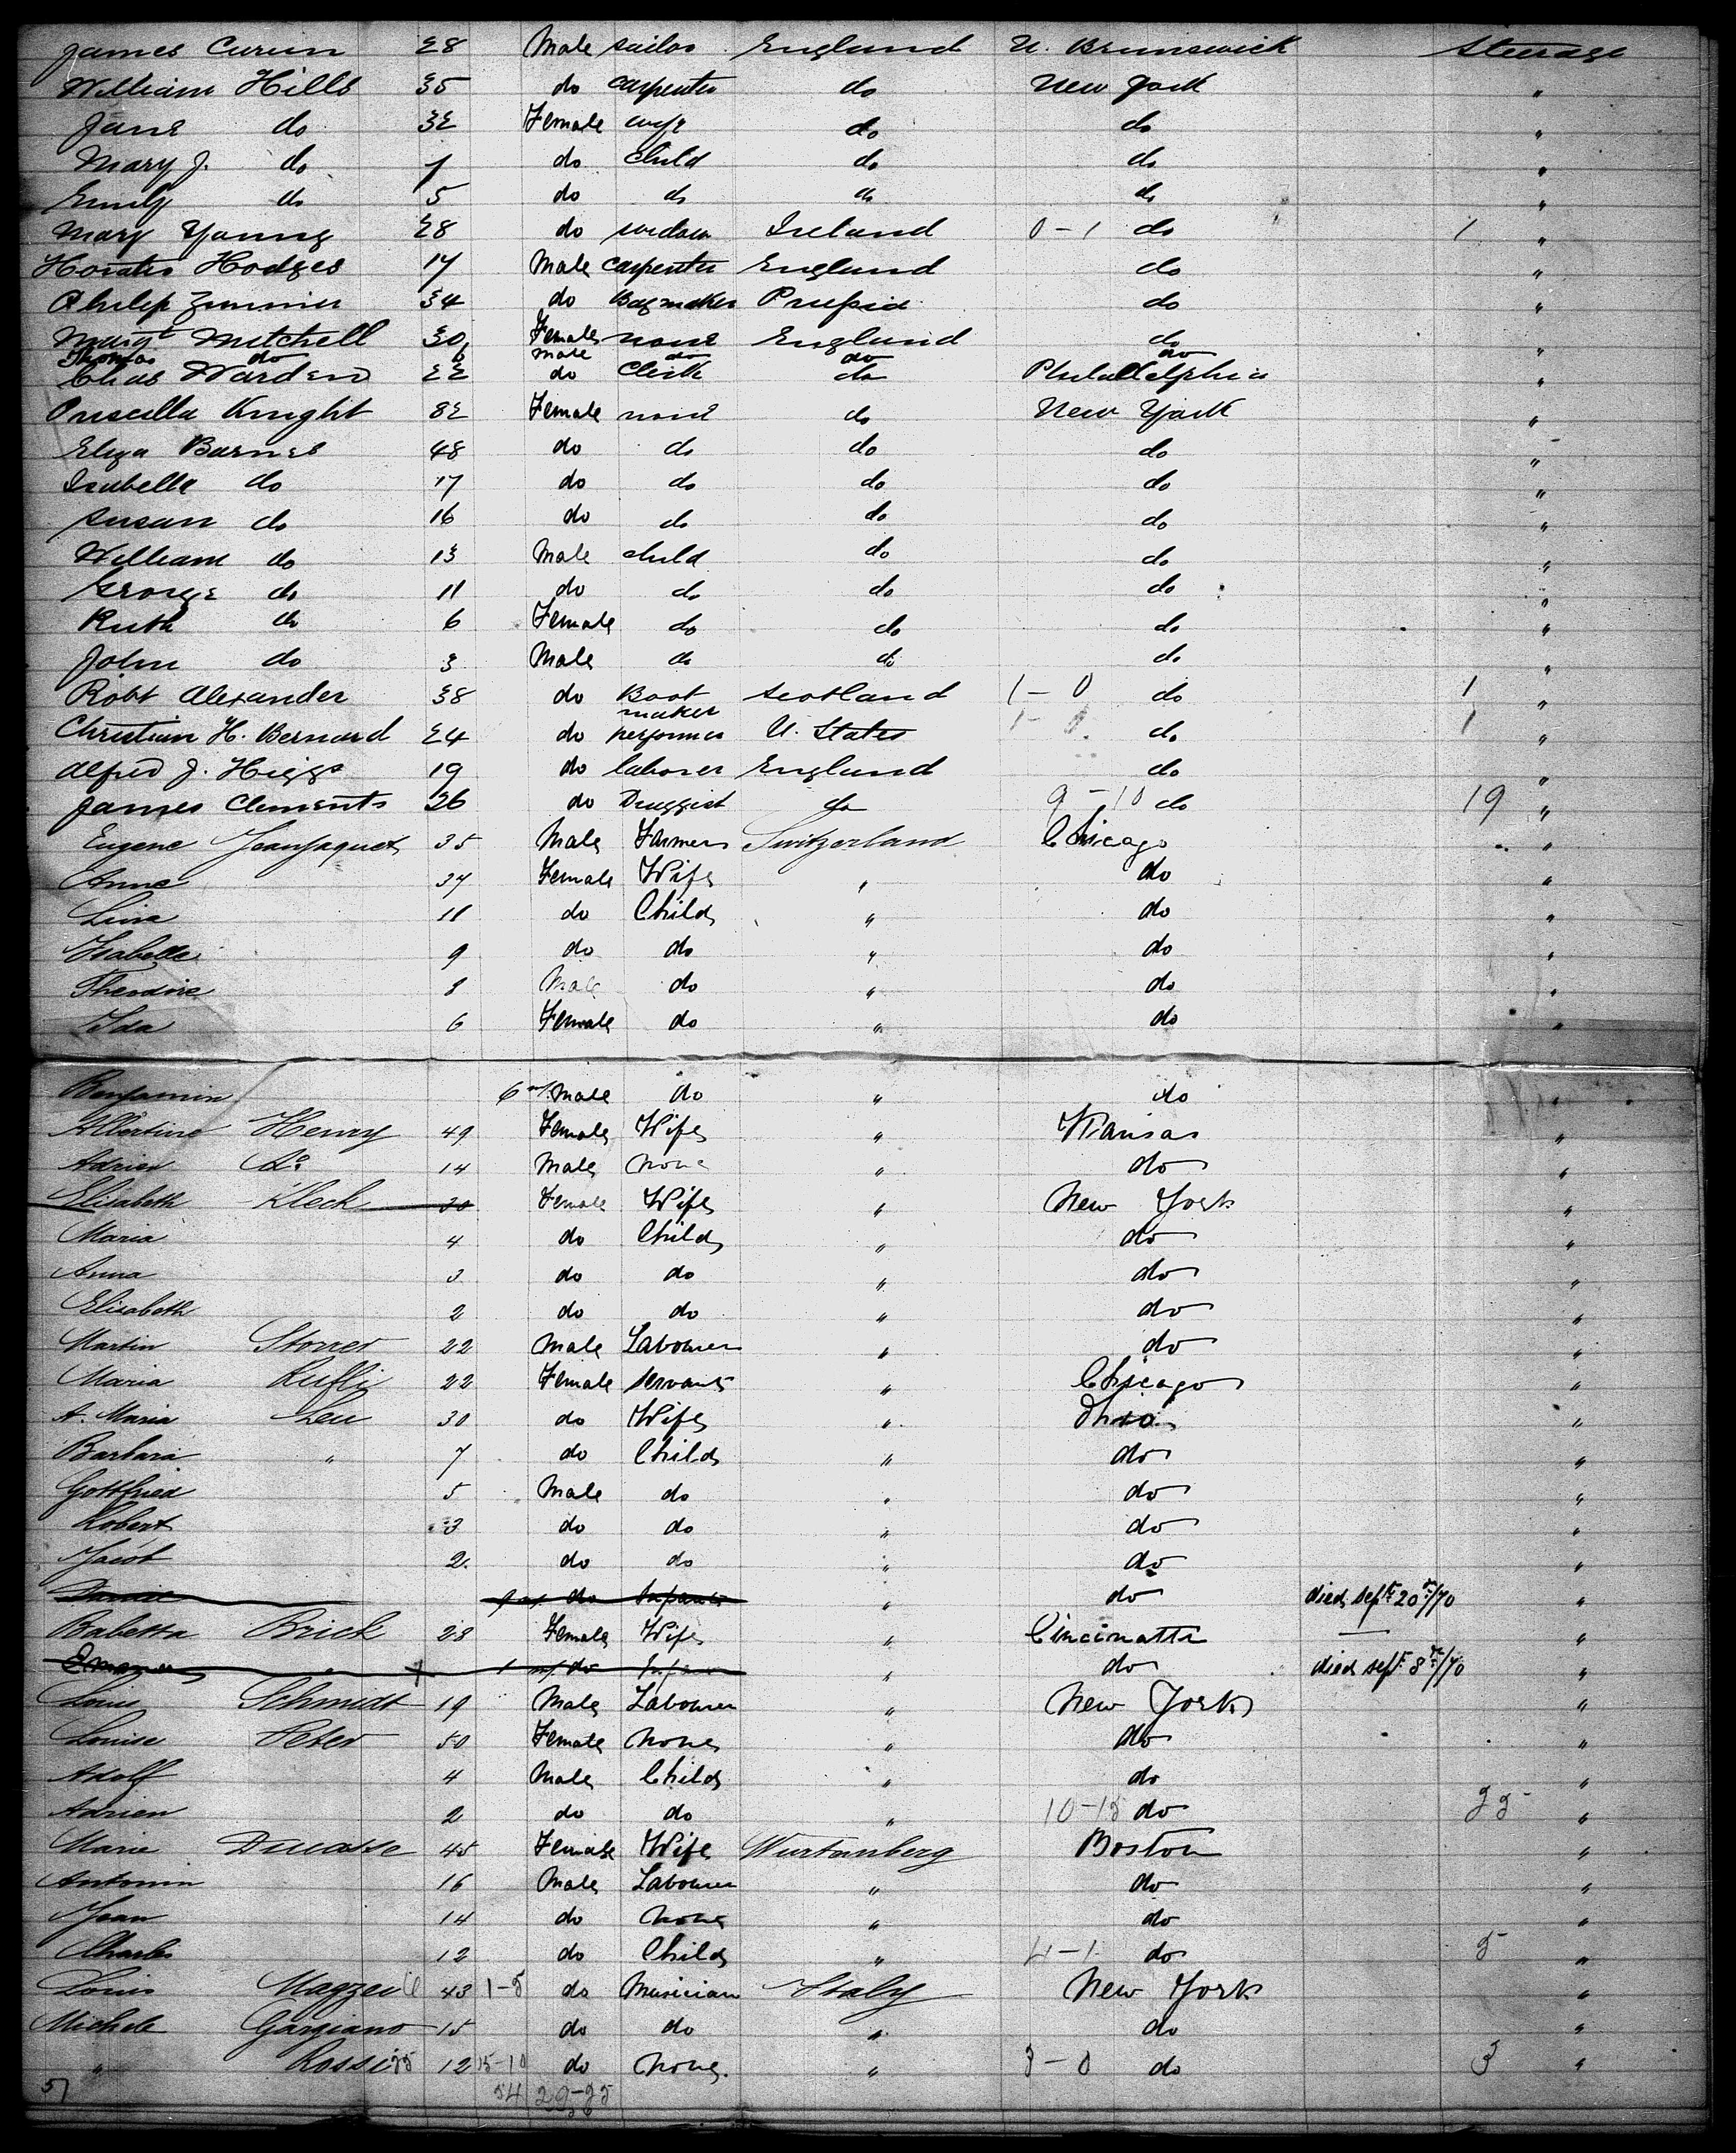 James Curun 28 Male sailor England N. Brunswick Steerage
William Hills 35 do carpenter do New York "
Jane do 32 Female wife do do "
Mary J. do 7 do child do do "
Emily do 5 do do do do "
Mary Young 28 do widow Ireland 0-1 do 1 "
Horatio Hodges 17 Male carpenter England do "
Philip Zimmer 34 do Bagmaker Prussia do "
Margt Mitchell 30 Female none England do "
Thomas do 6 male do do do
Chas Warden 22 do Clerk do Philadelphia "
Priscilla Knight 82 Female none do New York "
Eliza Barnes 48 do do do do "
Isabella do 17 do do do do "
Susan do 16 do do do do "
William do 13 Male child do do "
George do 11 do do do do "
Ruth do 6 Female do do do "
John do 3 Male do do do "
Robt Alexander 38 do Boot maker Scotland 1-0 do 1 "
Christian H. Bernard 24 do performer U. States 1-0 do 1 "
Alfred J. Higgs 19 do laborer England do "
James Clements 26 do Druggist do 9-10 do 19 "
Eugene Jeanjaquet 35 Male Farmer Switzerland Chicago "
Anne 37 Female Wife " do "
Lina 11 do Child " do "
Isabelle 9 do do " do "
Theodore 8 Male do " do "
Ida 6 Female do " do "
Benjamin 6 m/. male do " do "
Albertine Henry 49 Female Wife " Kansas "
Adrien do 14 Male none " do "
Elisabeth Kleck 30 Female Wife " New York "
Maria 4 do Child " do "
Anna 3 do do " do "
Elisabeth 2 do do " do "
Martin Storrer 22 Male Labourer " do "
Maria Rufli 22 Female Servant " Chicago "
A. Maria Leu 30 do Wife " Ohio "
Barbara " 7 do Child " do "
Gottfried 5 Male do " do "
Robert 3 do do " do "
Jacob 2 do do " do "
do Infant " do died Sept. 20th/70 "
Babetta Brick 28 Female Wife " Cincinatti "
do Infant " do died Sept. 8th/70 "
Louis Schmidt 19 Male Labourer " New York "
Louise Peter 50 Female none " do "
Adolf 4 Male Child " do "
Adrien 2 do do " 10-15 do 25 "
Marie Ducasse 45 Female Wife Wurtemberg Boston "
Antonin 16 Male Labourer " do "
Jean 14 do none " do "
Charles 12 do Child " 4-1 do 5 "
Louis 43 1-5 do Musician Italy New York "
Michele Gargiano 15 do do " do "
" Rossi 12 15-10 do none. " 3-0 do 3 "
57 54 29-25